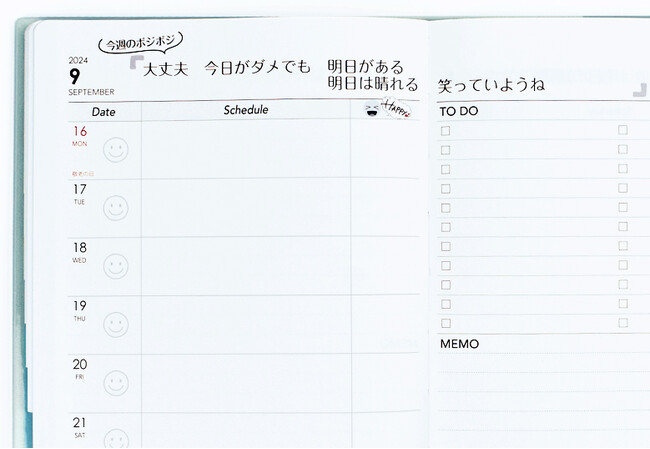 今週のポジポジ
2024
9
SEPTEMBER
「大丈夫 今日がダメでも 明日がある
明日は晴れる
笑っていようね」
Date Schedule HAPPY
16
MON
敬老の日
17
TUE
18
WED
19
THU
20
FRI
21
SAT
TO DO
MEMO